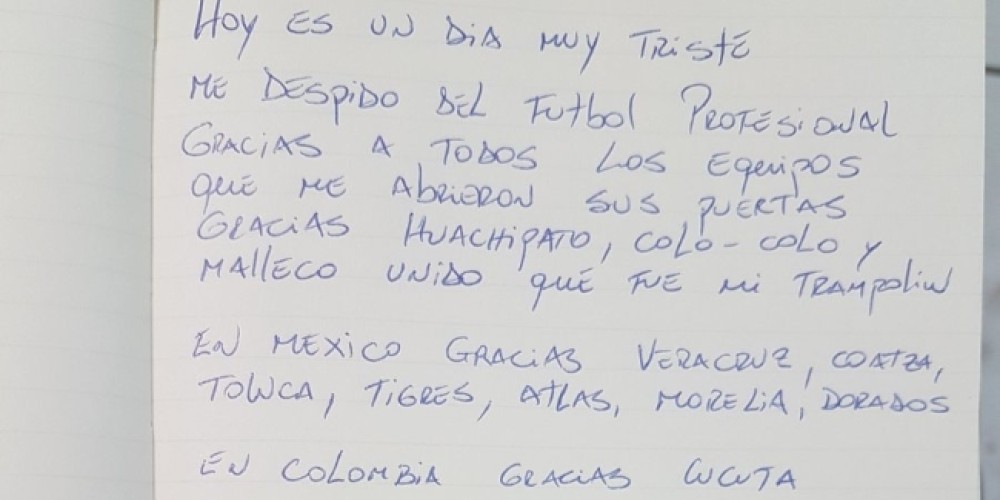 Hoy ES UN DiA MUY TRiStE
ME DESpiDO DEL Futbol PROFESiONAL
GRACiAS A TODOS LOS EquipOS
QUE ME AbRiERON SUS PUERTAS
GRACiAS HUACHiPATO, COLO-COLO y
MAllECO UNiDO QUE FUE Mi TRAMpOliN
EN MEXiCO GRACiAS VERACRUZ, COATZA,
TOLUCA, TiGRES, AtLAS, MORELiA, DORADOS
EN COLOMBiA GRACiAS CUCUTA